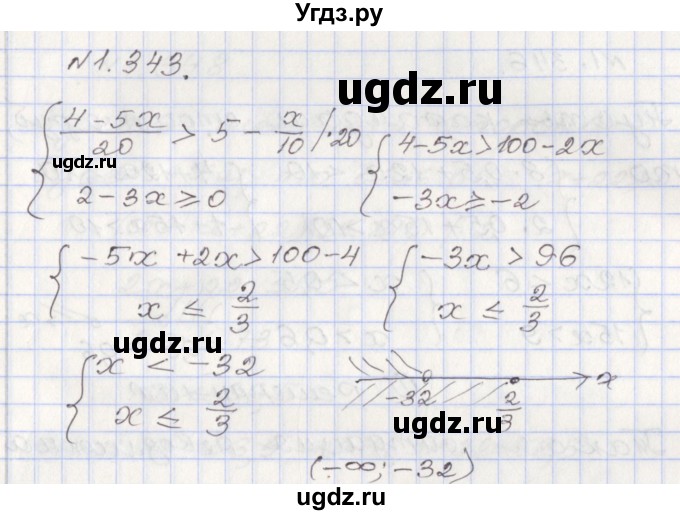 Угдз.ру
№1.343.
ugdz.ru
{ (4-5x)/20 > 5 - x/10 /·20
2-3x ≥ 0
{ 4-5x>100-2x
-3x≥-2
ugdz.ru
{ -5x+2x>100-4
x ≤ 2/3
{ -3x > 96
x ≤ 2/3
ugdz.ru
{ x < -32
x ≤ 2/3
-32 2/3 x
ugdz.ru
(-∞; -32)
ugdz.ru
Угдз.ру